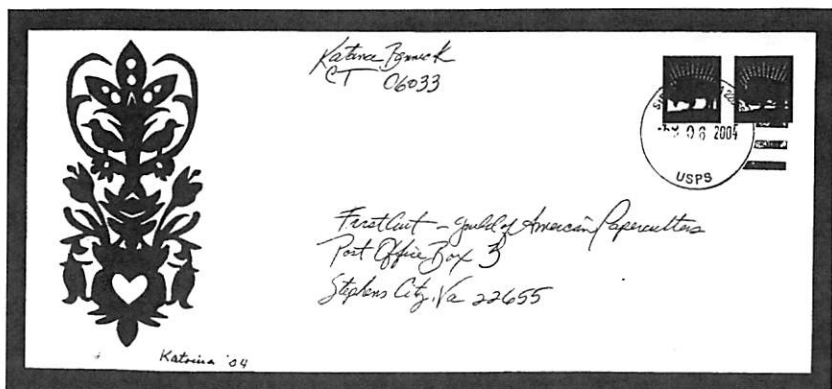 Katrina
CT 06033
08 2004
USPS
FirstCut - Guild of American Papercutters
Post Office Box 3
Stephens City, Va 22655
Katrina '04